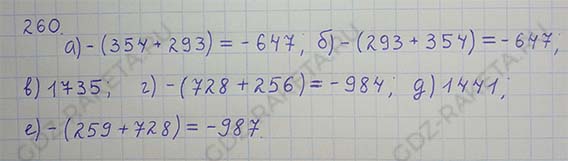 260.
а) -(354 + 293) = -647; б) -(293 + 354) = -647;
в) 1735; г) -(728 + 256) = -984; д) 1441;
е) -(259 + 728) = -987.
GDZ-RAKETA.RU